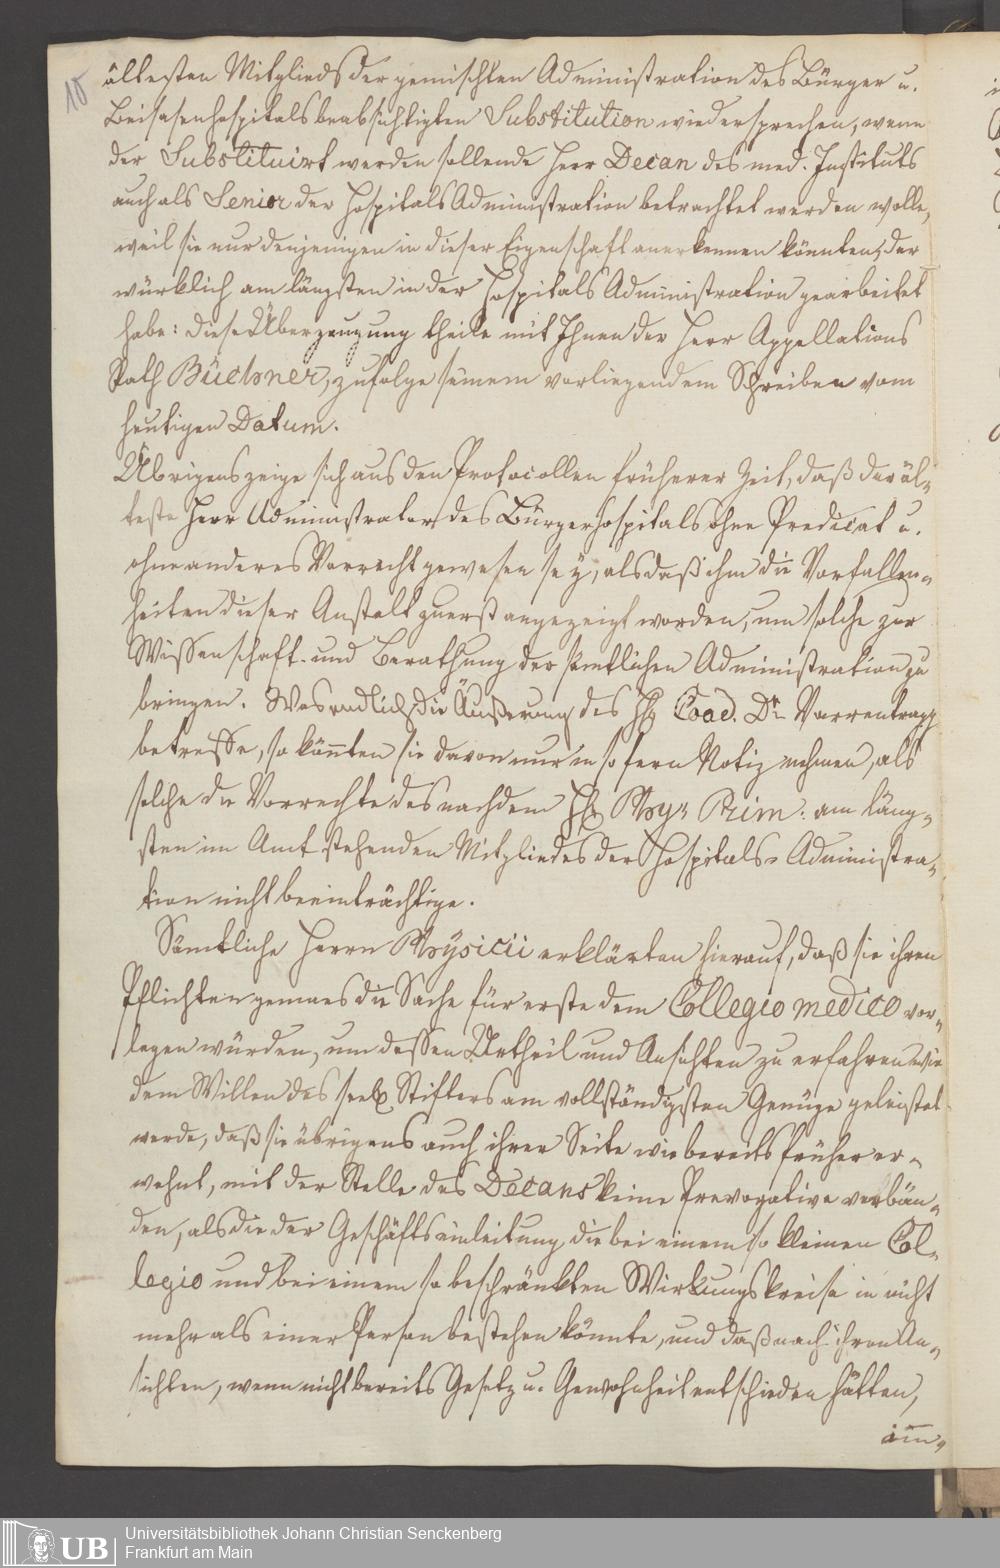 10
ältesten Mitglieds der gemischten Administration des Bürger u.
Beisasenhospitals beabsichtigten Substitution wiedersprechen, wenn
der Substituirt werden sollende Herr Decan des med. Instituts
auch als Senior der Hospitals Administration betrachtet werden wolle,
weil sie nur denjenigen in dieser Eigenschaft anerkennen könnten, der
würklich am längsten in der Hospitals Administration gearbeitet
habe: diese Überzeugung theile mit Ihnen der Herr Appellations
Rath Büchner, zufolge seinem vorliegendem Schreiben vom
heutigen Datum.
Übrigens zeige sich aus den Protocollen früherer Zeit, daß der äl-
teste Herr Administrator des Bürgerhospitals ohne Predicat u.
ohne anderes Vorrecht gewesen sey, als daß ihm die Vorfallen-
heiten dieser Anstalt zuerst angezeigt worden, um solche zur
Wissenschaft und Berathung der sämtlichen Administration zu
bringen. Was endlich die Äußerung des H Coad. Dr Varrentrapp
betreffe, so könten sie davon nur in so fern Notiz nehmen, als
solche die Vorrechte des nach dem H. Phys Prim: am läng-
sten im Amt stehenden Mitgliedes der Hospitals Administra-
tion nicht beeinträchtige.
Sämtliche Herrn Physicii erklärten hierauf, daß sie ihren
Pflichten gemaes die Sache für erste dem Collegio medico vor-
legen würden, um dessen Urtheil und Ansichten zu erfahren wie
dem Willen des seel. Stifters am vollständigsten Genüge geleistet
werde, daß sie übrigens auch ihrer Seite wie bereits früher er-
wehnt, mit der Stelle des Decans keine Prerogative verbän-
den, als die der Geschäftseinleitung die bei einem so kleinen Col-
legio und bei einem so beschränkten Wirkungskreise in nicht
mehr als einer Person bestehen könnte, und daß nach ihren An-
sichten, wenn nicht bereits Gesetz u. Gewohnheit entschieden hätten,
im-
UB
Universitätsbibliothek Johann Christian Senckenberg
Frankfurt am Main